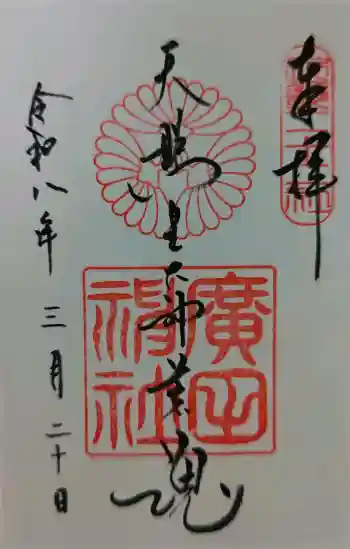 奉拝
天照皇大神荒魂
廣田
神社
令和八年 三月 二十日